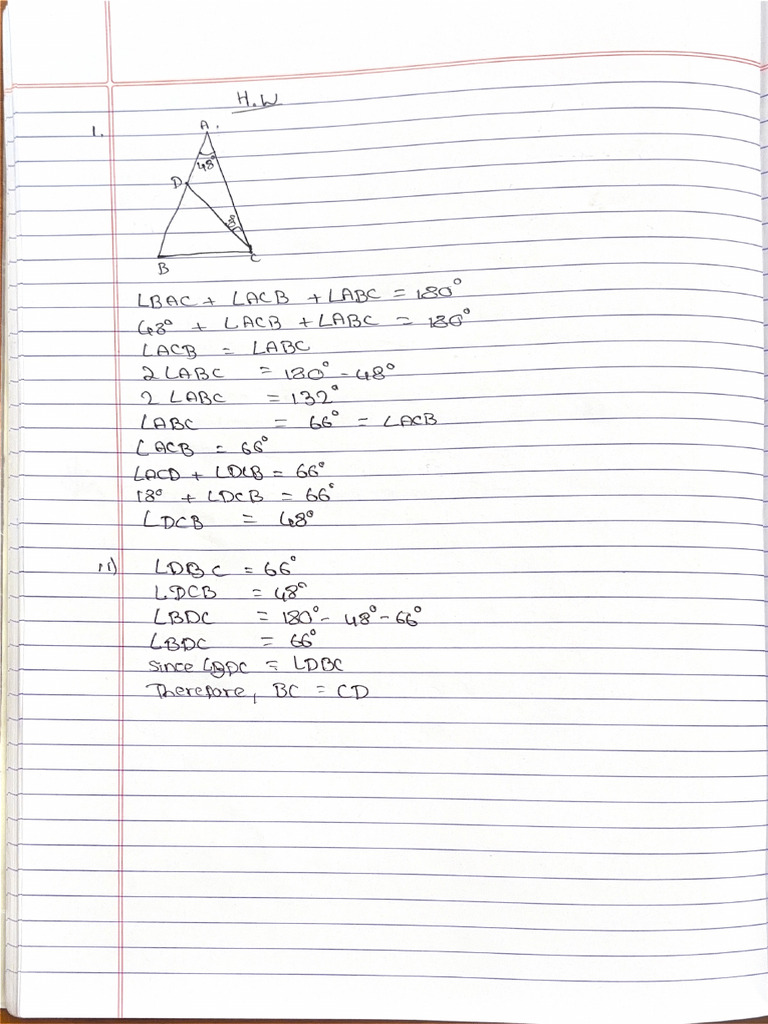 H.W
1.
A.
48°
D
18°
B
C
∠BAC + ∠ACB + ∠ABC = 180°
48° + ∠ACB + ∠ABC = 180°
∠ACB = ∠ABC
2∠ABC = 180° - 48°
2∠ABC = 132°
∠ABC = 66° = ∠ACB
∠ACB = 66°
∠ACD + ∠DCB = 66°
18° + ∠DCB = 66°
∠DCB = 48°
ii) ∠DBC = 66°
∠DCB = 48°
∠BDC = 180° - 48° - 66°
∠BDC = 66°
Since ∠BDC = ∠DBC
Therefore, BC = CD